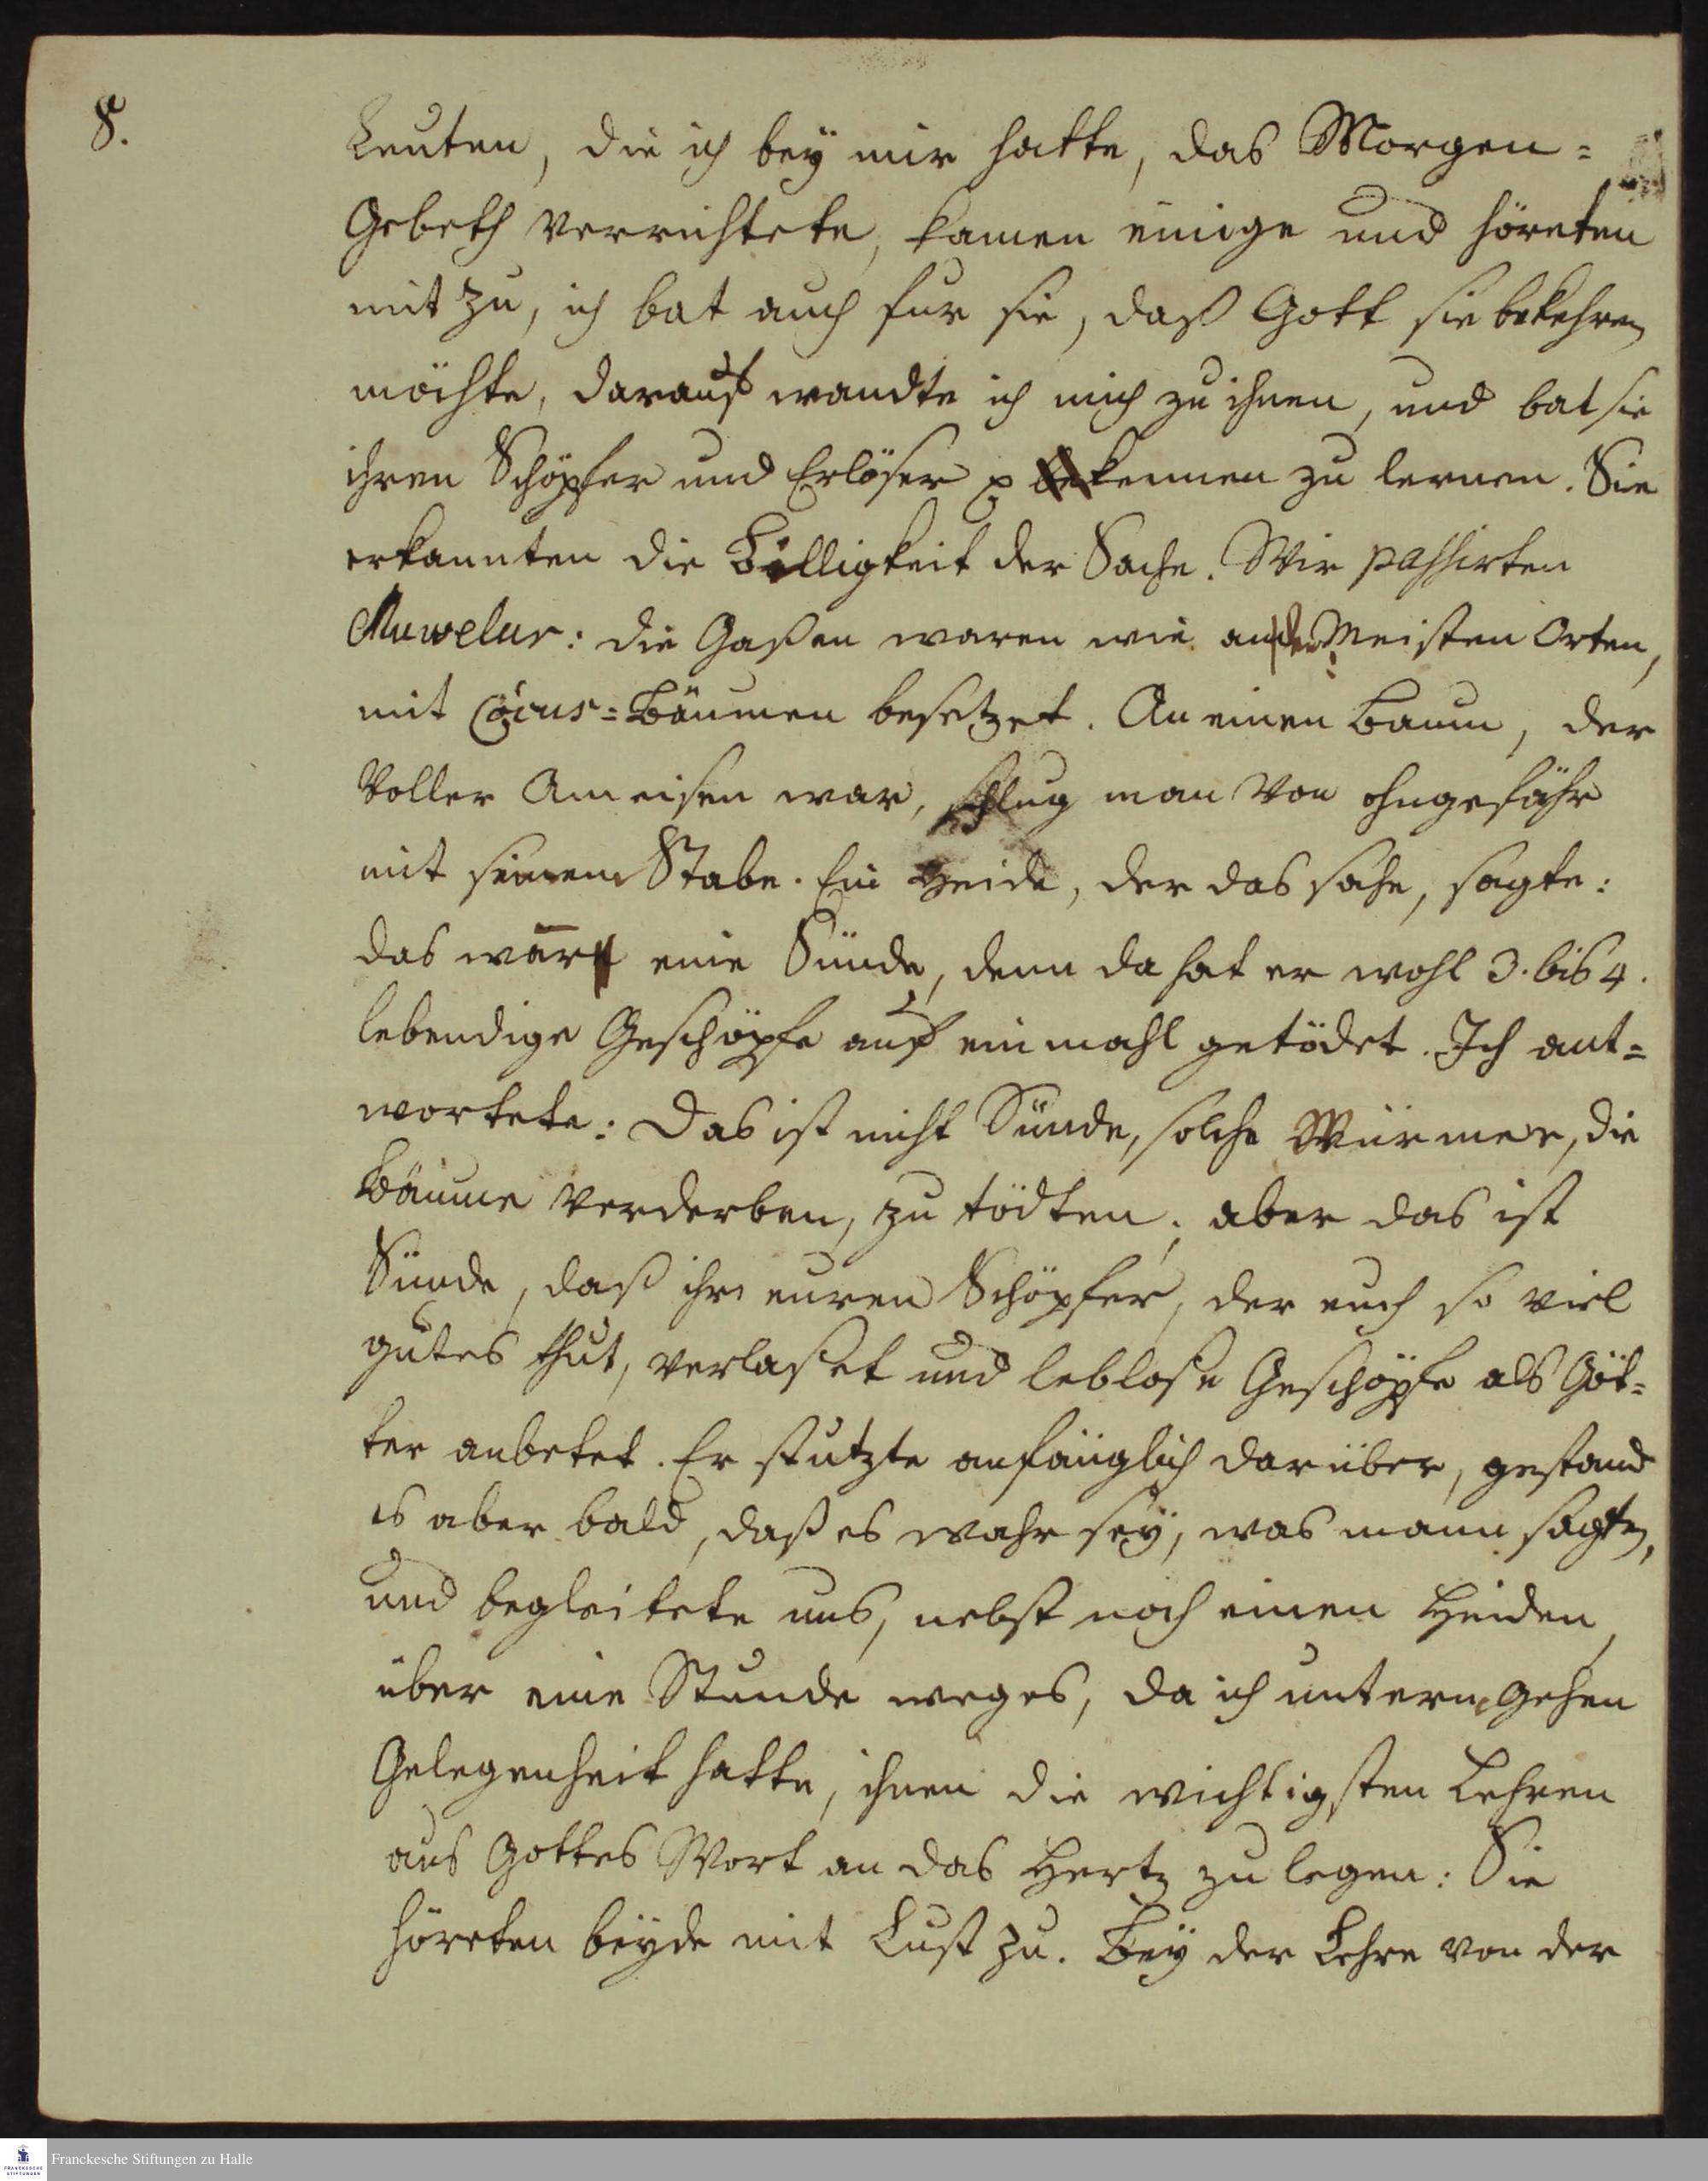 8.
Leuten, die ich bey mir hatte, das Morgen=
Gebeth verrichtete, kamen einige und höreten
mit zu, ich bat auch fur sie, daß Gott sie bekehren
möchte, darauf wandte ich mich zu ihnen, und bat sie
ihren Schöpfer und Erlöser kennen zu lernen. Sie
erkannten die Billigkeit der Sache. Wir passirten
Muwelur: die Gaßen waren wie an den meisten Orten,
mit Cocus=Bäumen besetzet. An einen Baum, der
voller Ameisen war, schlug man von ohngefähr
mit seinem Stabe. Ein Heide, der das sahe, sagte:
das wär eine Sünde, denn da hat er wohl 3. bis 4.
lebendige Geschöpfe auf einmahl getödet. Ich ant=
wortete: Das ist nicht Sünde, solche Würmer, die
Bäume verderben, zu tödten; aber das ist
Sünde, daß ihr euren Schöpfer, der euch so viel
gutes thut, verlaßet und leblose Geschöpfe als Göt=
ter anbetet. Er stutzte anfänglich darüber, gestand
es aber bald, daß es wahr sey, was mann sagte,
und begleitete uns, nebst noch einen Heiden,
über eine Stunde weges, da ich unterm Gehen
Gelegenheit hatte, ihnen die wichtigsten Lehren
aus Gottes Wort an das Hertz zu legen: Sie
höreten beyde mit Lust zu. Bey der Lehre von der
FRANCKESCHE STIFTUNGEN
Franckesche Stiftungen zu Halle